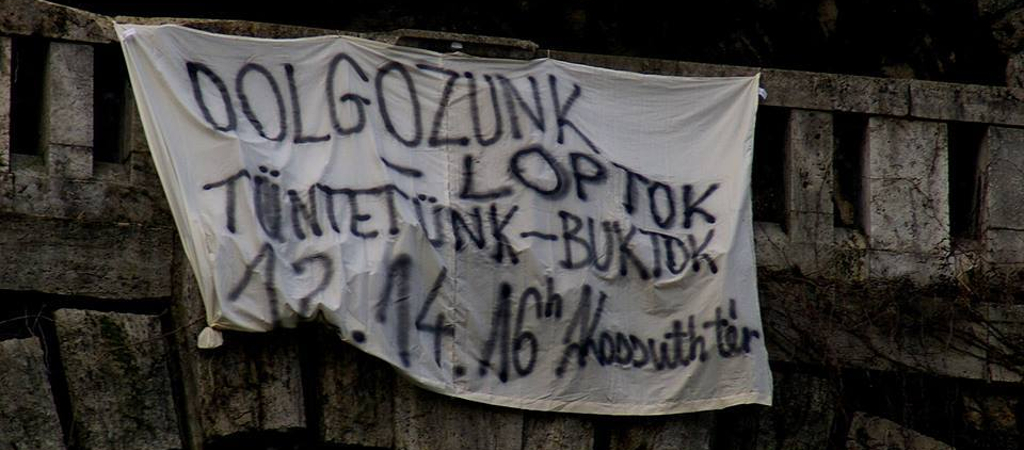 DOLGOZUNK
- LOPTOK
TÜNTETÜNK - BUKTOK
12.14.16h Kossuth tér